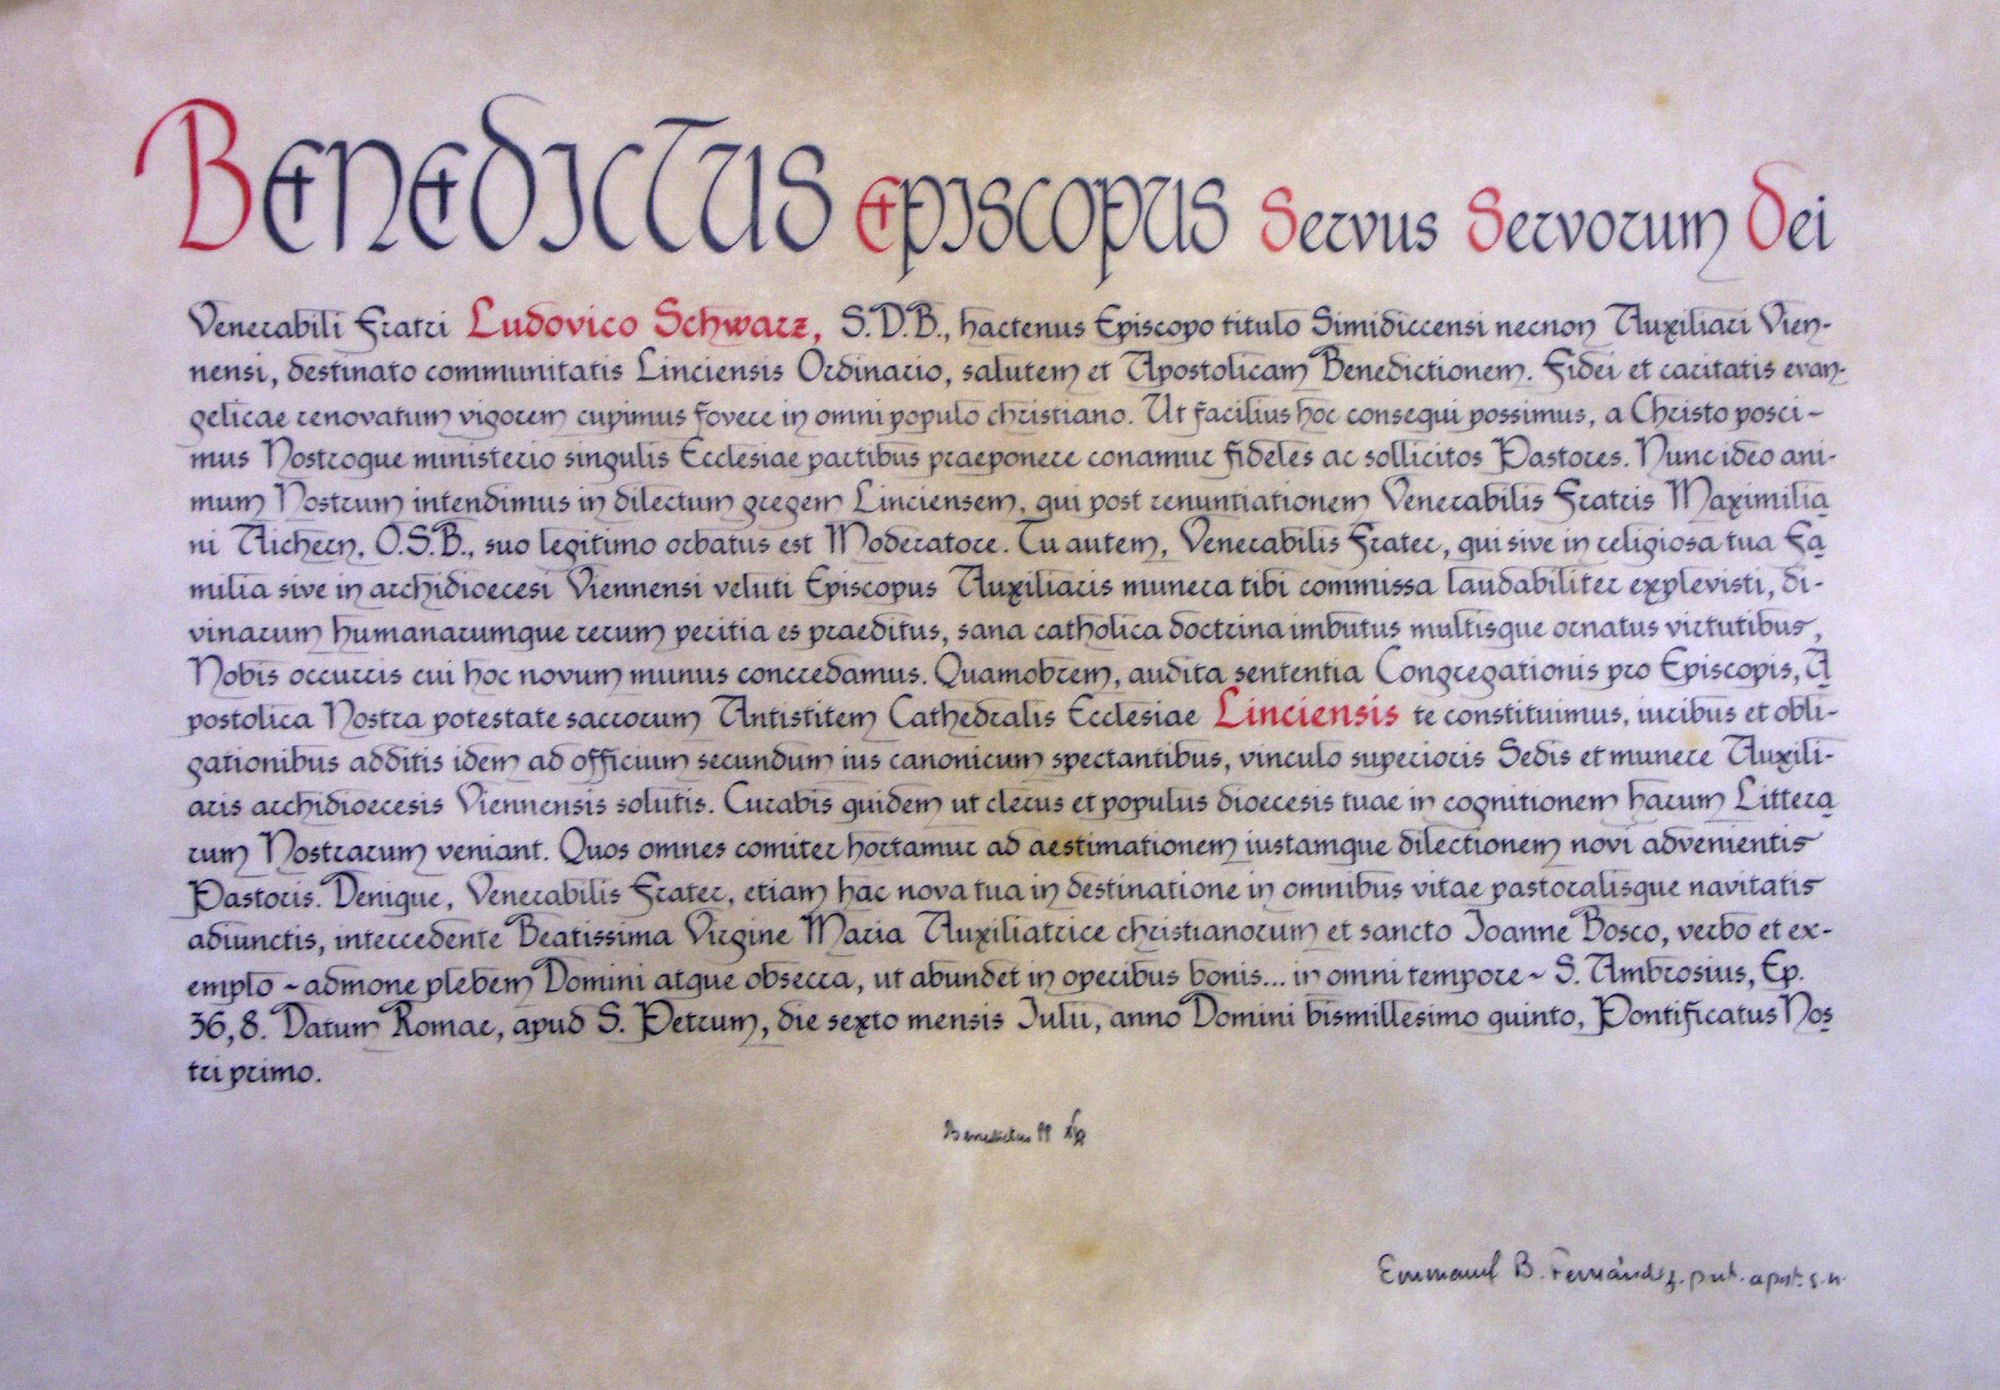 Benedictus Episcopus Servus Servorum Dei
Venerabili Fratri Ludovico Schwarz, S.D.B., hactenus Episcopo titulo Simidiccensi necnon Auxiliari Vien-
nensi, destinato communitatis Linciensis Ordinario, salutem et Apostolicam Benedictionem. Fidei et caritatis evan-
gelicae renovatum vigorem cupimus fovere in omni populo christiano. Ut facilius hoc consequi possimus, a Christo posci-
mus Nostroque ministerio singulis Ecclesiae partibus praeponere conamur fideles ac sollicitos Pastores. Nunc ideo ani-
mum Nostrum intendimus in dilectum gregem Linciensem, qui post renuntiationem Venerabilis Fratris Maximilia
ni Aichern, O.S.B., suo legitimo orbatus est Moderatore. Tu autem, Venerabilis Frater, qui sive in religiosa tua Fa
milia sive in archidioecesi Viennensi veluti Episcopus Auxiliaris munera tibi commissa laudabiliter explevisti, di-
vinarum humanarumque rerum peritia es praeditus, sana catholica doctrina imbutus multisque ornatus virtutibus,
Nobis occurris cui hoc novum munus concredamus. Quamobrem, audita sententia Congregationis pro Episcopis, A
postolica Nostra potestate sacrorum Antistitem Cathedralis Ecclesiae Linciensis te constituimus, iuribus et obli-
gationibus additis idem ad officium secundum ius canonicum spectantibus, vinculo superioris Sedis et munere Auxili-
aris archidioecesis Viennensis solutis. Curabis quidem ut clerus et populus dioecesis tuae in cognitionem harum Littera
rum Nostrarum veniant. Quos omnes comiter hortamur ad aestimationem iustamque dilectionem novi advenientis
Pastoris. Denique, Venerabilis Frater, etiam hac nova tua in destinatione in omnibus vitae pastoralisque navitatis
adiunctis, intercedente Beatissima Virgine Maria Auxiliatrice christianorum et sancto Ioanne Bosco, verbo et ex-
emplo ~ admone plebem Domini atque obsecra, ut abundet in operibus bonis... in omni tempore ~ S. Ambrosius, Ep.
36,8. Datum Romae, apud S. Petrum, die sexto mensis Iulii, anno Domini bismillesimo quinto, Pontificatus Nos
tri primo.
Benedictus PP XVI
Emmanuel B. Fernández. prot. apost. s.n.